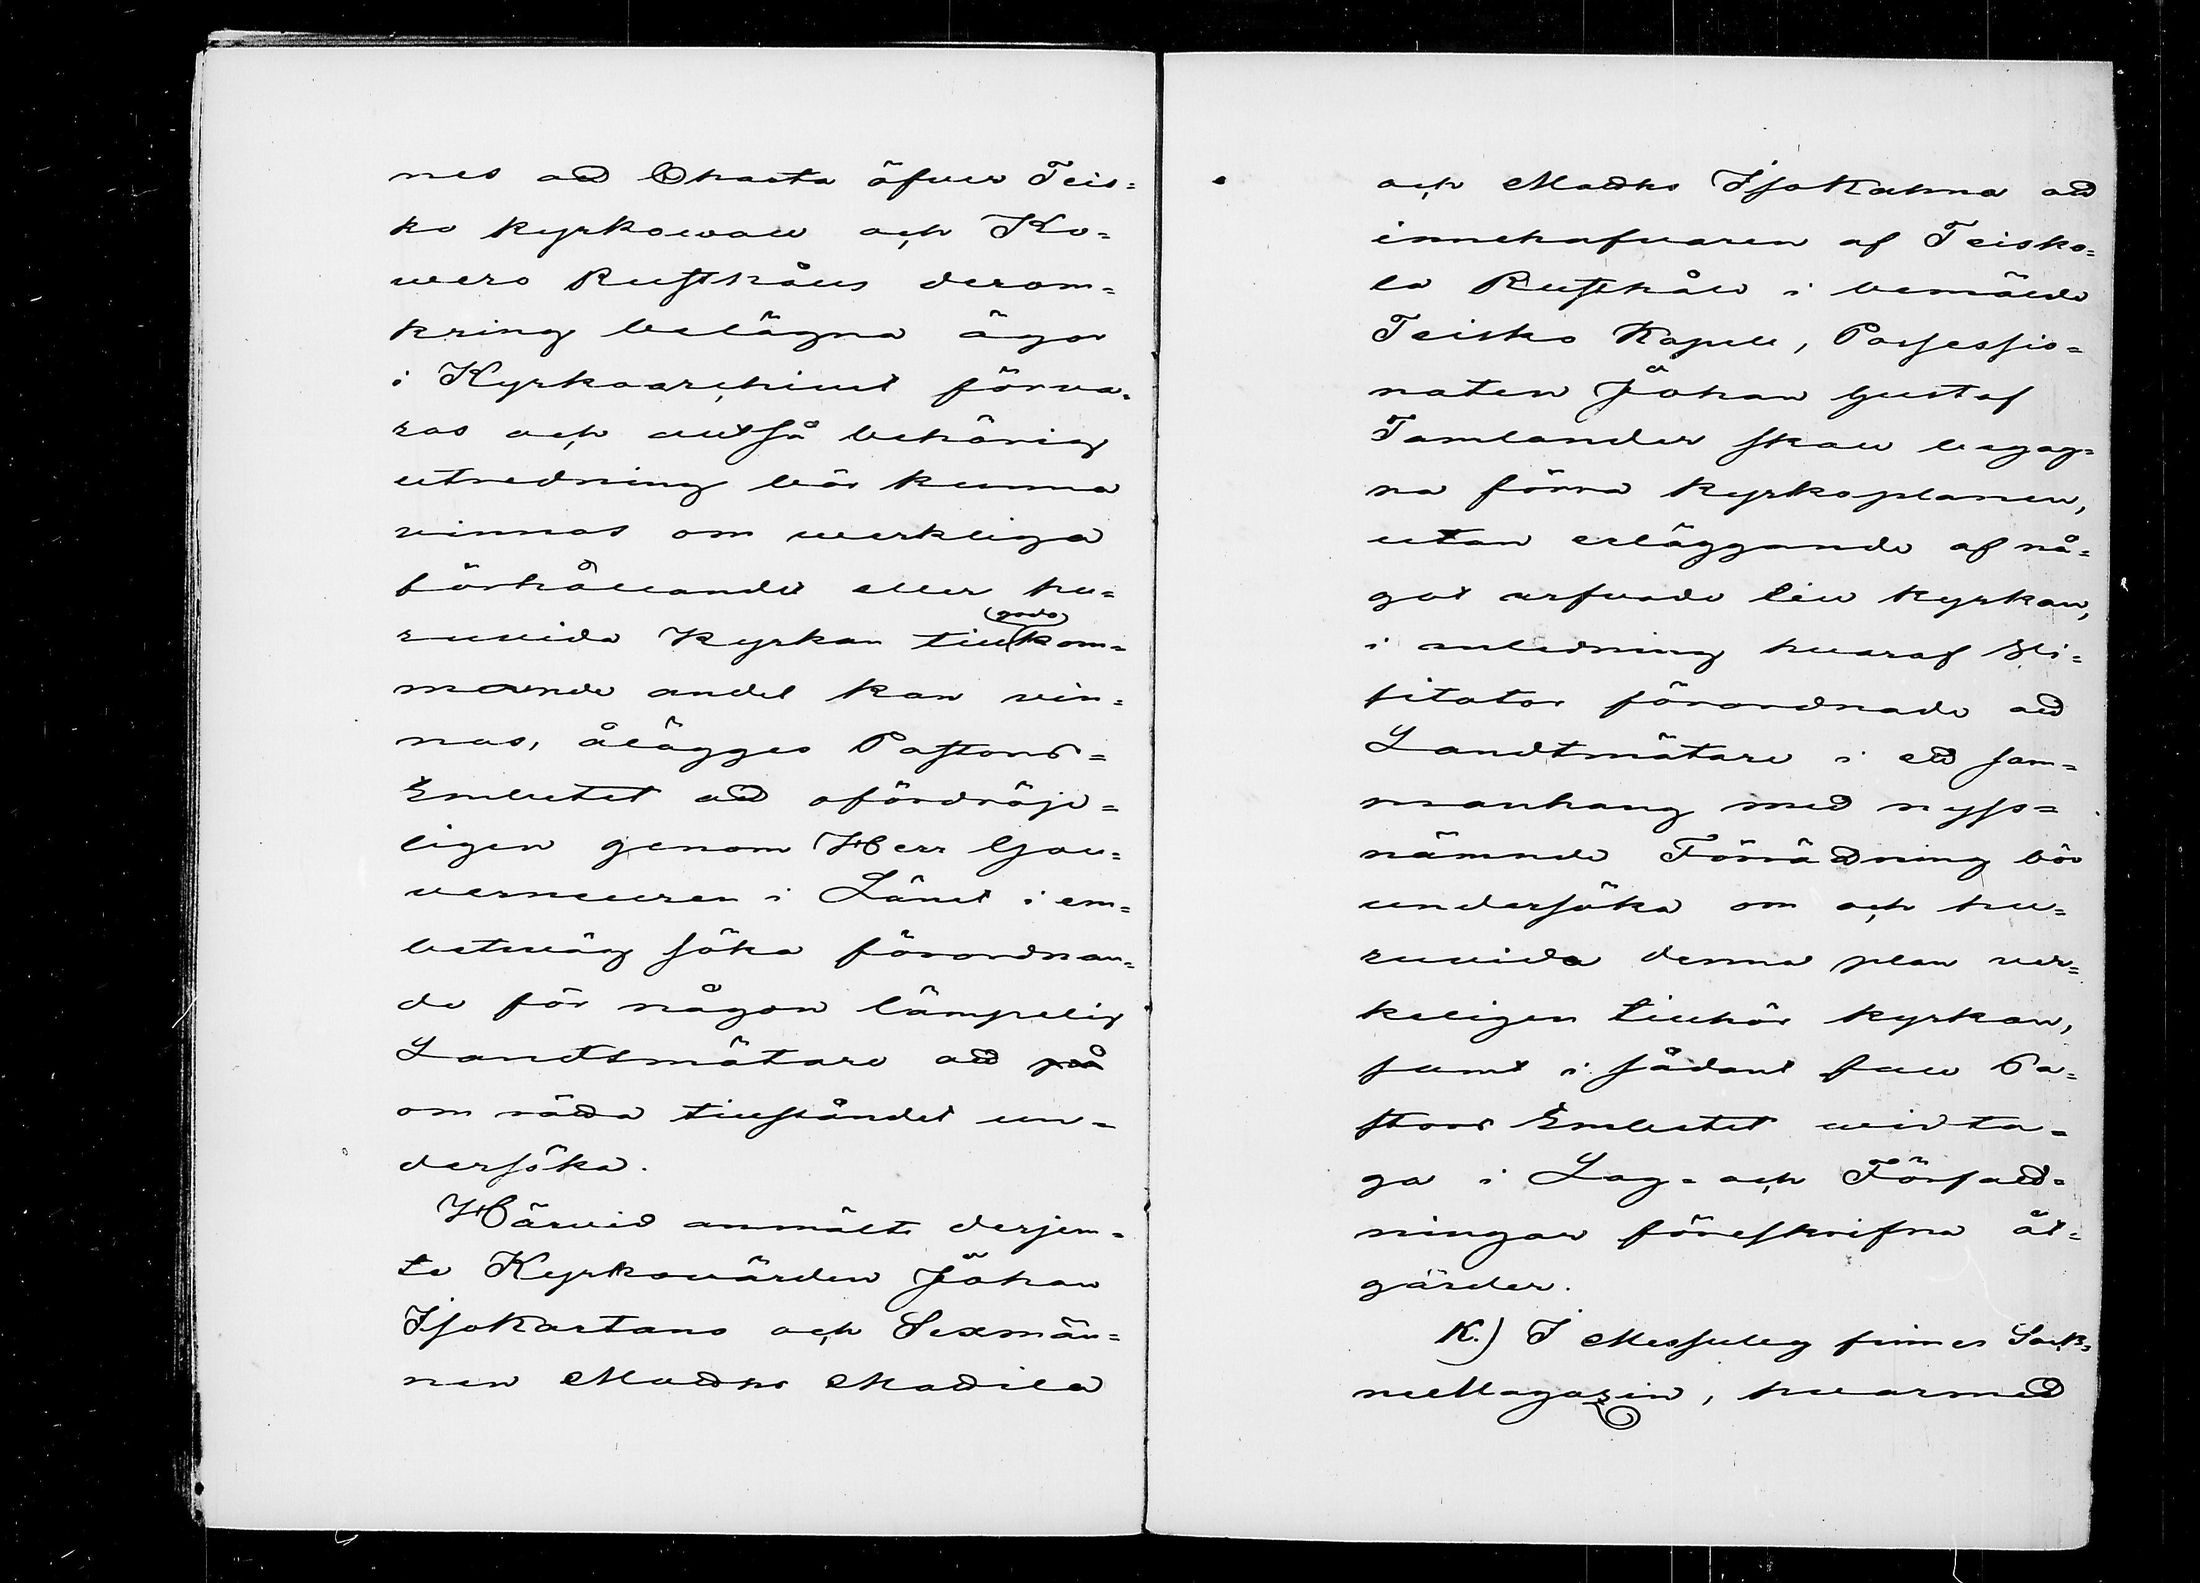 nes att Charta öfver Teis=
ko kyrkowall och Ko=
vero Rusthålls derom=
kring belägna ägor
i Kyrkoarchivet förva=
ras och altså behörig
utredning bör kunna
vinnas om verkliga
förhållandet eller hu=
ruvida Kyrkan till godo kom=
mande andel kan vin=
nas, ålägges Pastors=
Embetet att ofördröje=
ligen genom Herr Gou=
verneuren i Länet i em=
betsväg söka förordnan=
de för någon lämpelig
Landtmätare att på
om rätta tillståndet un=
dersöka.
Härvid anmälte derjem=
te Kyrkovärden Johan
Isokartano och Sexmän=
nen Matths Mattila
och Matths Isokanna att
innehafvaren af Teisko=
la Rusthåll i bemälde
Teisko Kapell, Possessio=
naten Johan Gustaf
Tamlander skall begag=
na förra kyrkoplanen,
utan erläggande af nå=
got arfvode till kyrkan,
i anledning hvaraf Vi=
sitator förordnade att
Landtmätare i ett sam=
manhang med nyss=
nämnde Förrättning bör
undersöka om och hu=
ruvida denna plan ver=
keligen tillhör kyrkan,
samt i sådant fall Pa=
stors Embetet vidta=
ga i Lag- och Författ=
ningar föreskrifna åt=
gärder.
K.) I Messuby finnes Sock=
neMagazin, hvarmed